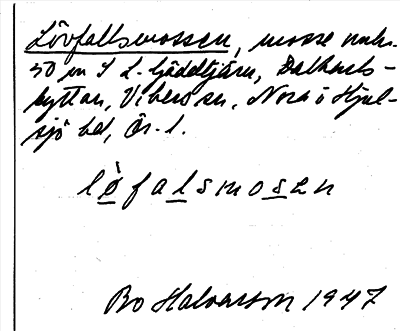 Lövfallsmossen, mosse
50 m S L. Gäddtjärn, Dalkarls-
hyttan, Vikers sn, Nora o Hjul-
sjö bd, Ör. l.
lø̀falsmosen
Bo Halvarsson 1947